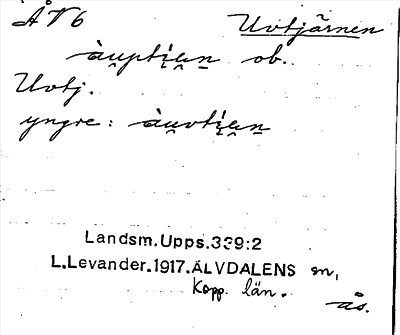 ÅV6 Uvtjärnen
àu̯pti̯ḙn̲ ob.
Uvtj.
yngre: àu̯vti̯ḙn̲
Landsm.Upps.339:2
L.Levander.1917.ÄLVDALENS sn,
Kopp. län.
ås.